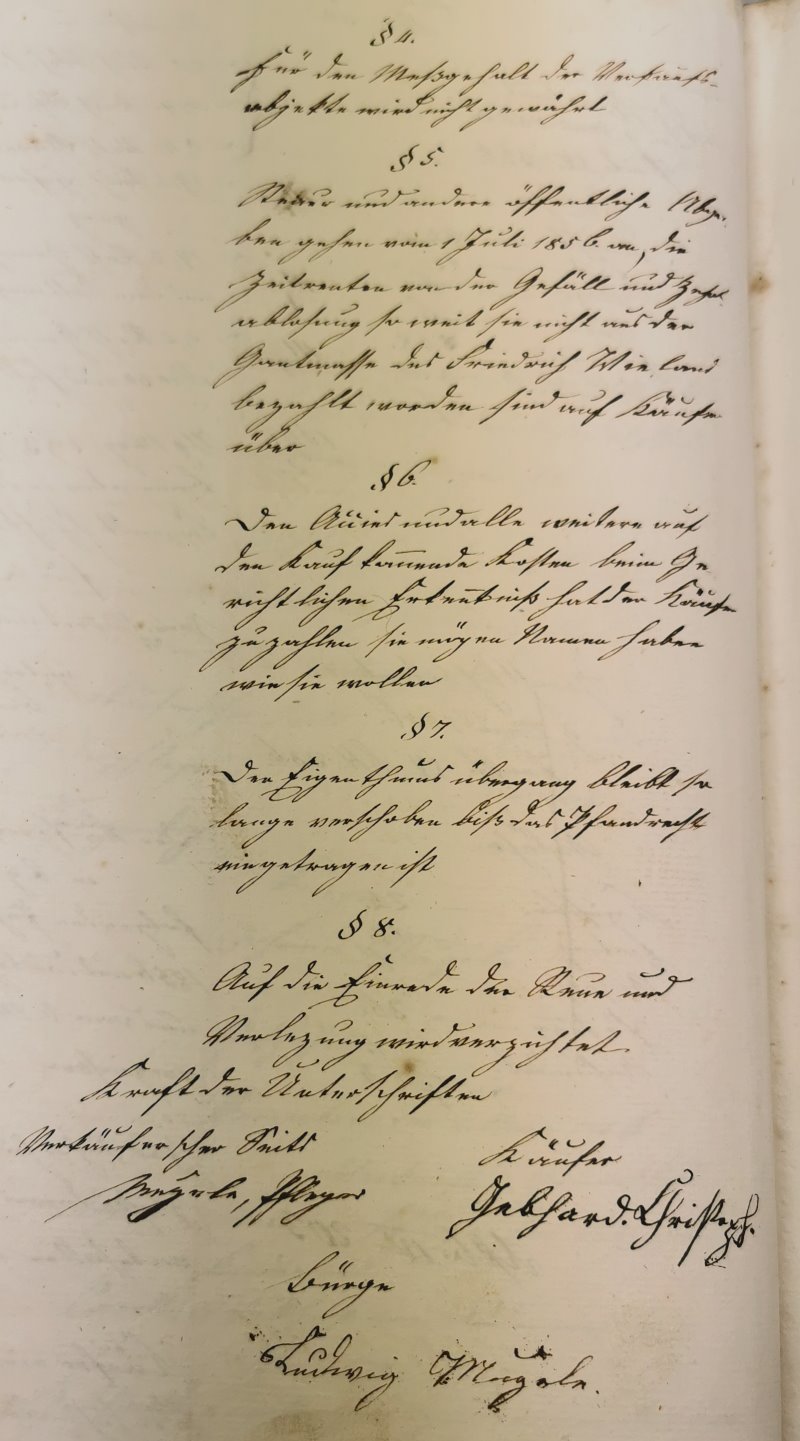 § 4.
Für den Meßgehalt der Verkaufs-
objekte wird nicht gewährt
§ 5.
Steuer und andere öffentliche Abga-
ben gehen vom 1 Juli 1856. an, die
Zeitrenten von der Gefäll und Zehnt
ablosung so weit sie nicht aus der
Gantmasse des Friedrich Wieland
bezahlt worden sind auf Käufer
über
§ 6.
Den Accies und alle weitere auf
den Kauf kom̄ende Kosten beim Ge
richtlichen Erkentniß hat der Käufer
zu zahlen sie mögen Namen haben
wie sie wollen
§ 7.
Der Eigenthums übergang bleibt so
lange verschoben biß das Pfandrecht
eingetragen ist
§ 8.
Auf die Einrede der Reue und
Verlezung wird verzichtet.
Kraft der Unterschriften
Verkäuferscher Seits
Käufer
Mugele, Pfleger
Gebhard. Christoph.
Bürge
Ludwig Mugele.